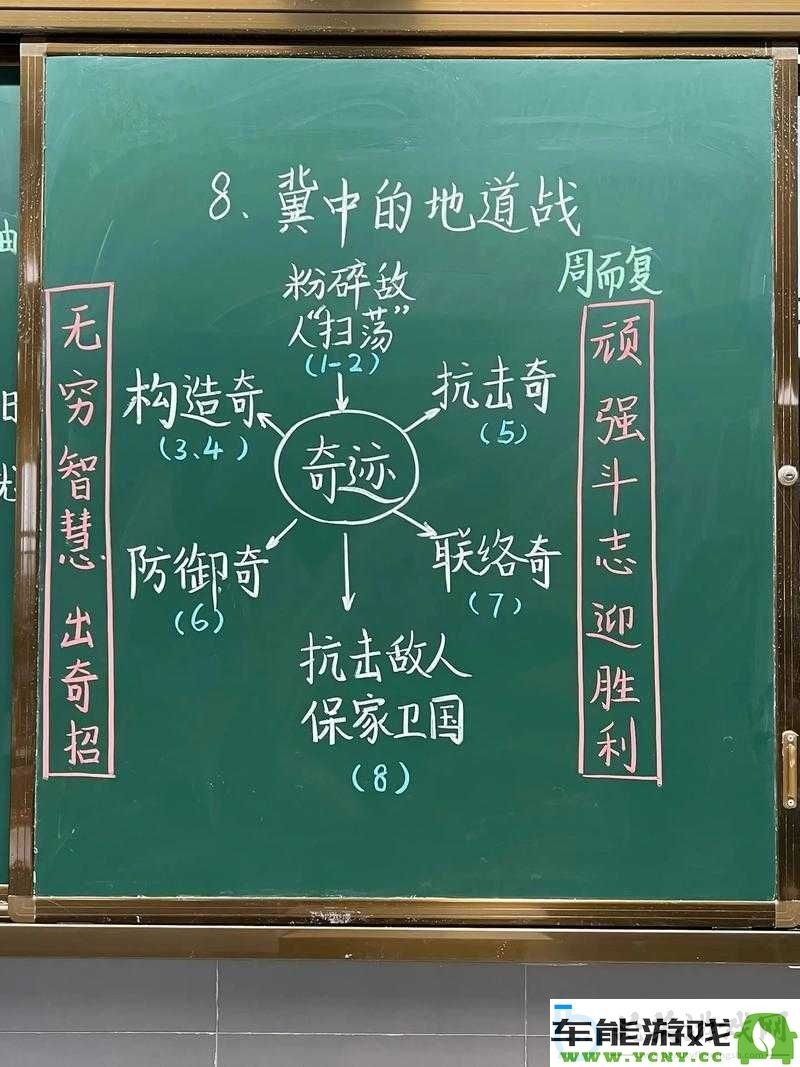 8、冀中的地道战
周而复
粉碎敌
人“扫荡”
(1-2)
构造奇
(3.4)
抗击奇
(5)
奇迹
防御奇
(6)
联络奇
(7)
抗击敌人
保家卫国
(8)
无穷智慧出奇招
顽强斗志迎胜利
由
日
车能游戏
www.YCNY.CC